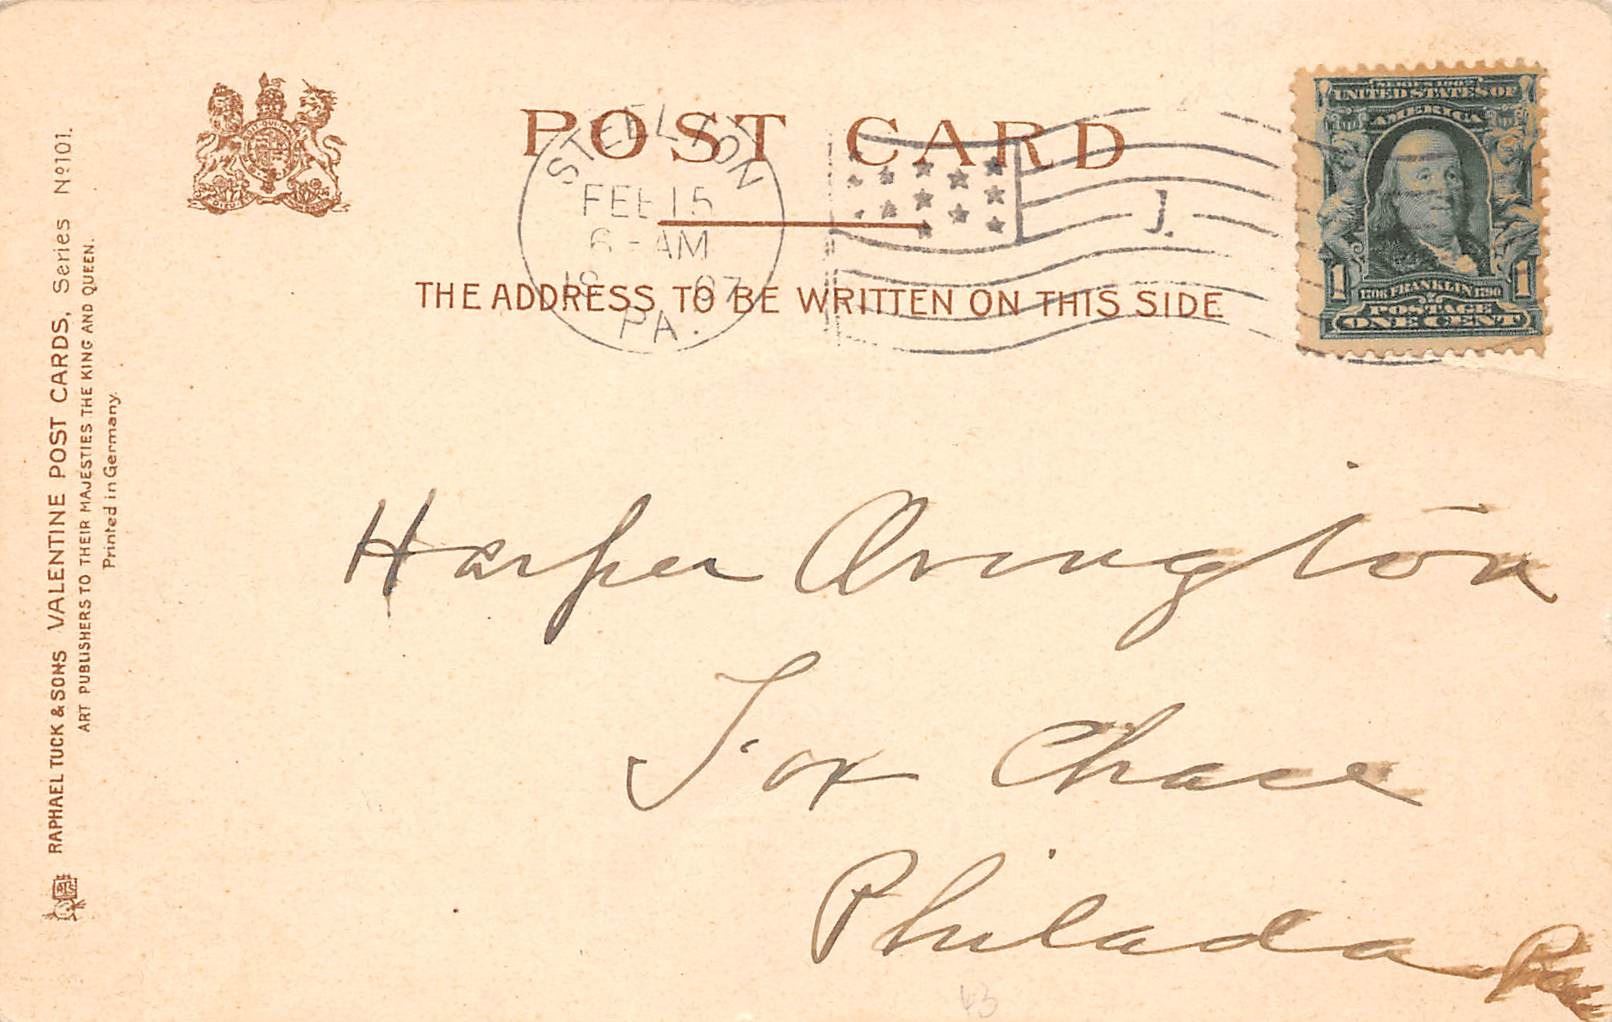 POST CARD
STEELTON
FEB 15
6 - AM
07
PA.
J.
THE ADDRESS TO BE WRITTEN ON THIS SIDE
UNITED STATES OF
AMERICA
1 1706 FRANKLIN 1790 1
POSTAGE
ONE CENT
RAPHAEL TUCK & SONS VALENTINE POST CARDS, Series No 101.
ART PUBLISHERS TO THEIR MAJESTIES THE KING AND QUEEN.
Printed in Germany.
Harper Ovington
Fox Chase
Philada Pa
43